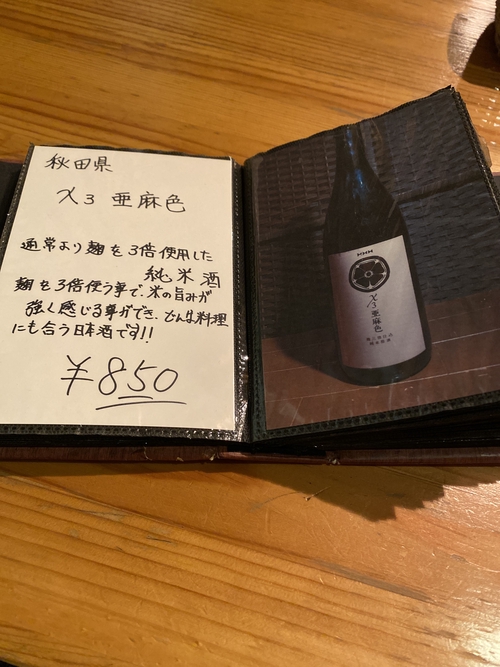 秋田県
X3 亜麻色
通常より麹を3倍使用した
純米酒
麹を3倍使う事で、米の旨みが
強く感じる事ができ、どんな料理
にも合う日本酒です!!
¥850
X3 亜麻色